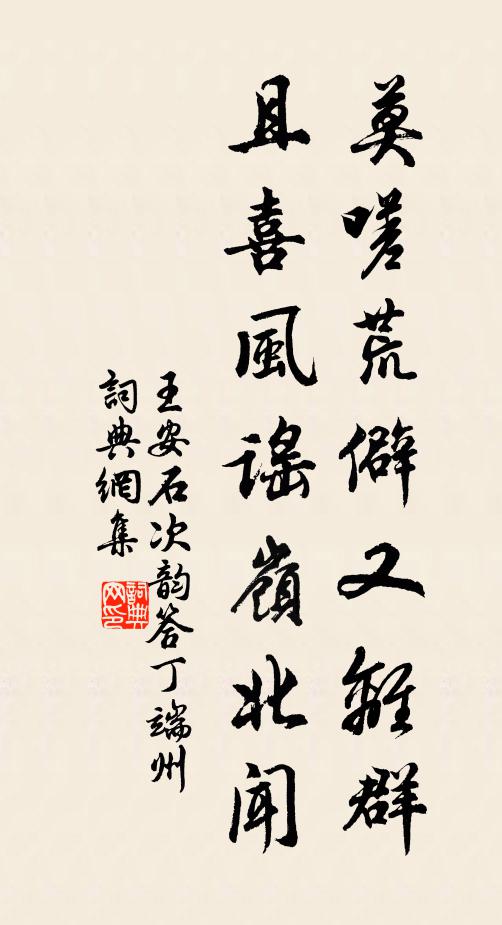 莫嗟荒僻又離群
且喜風謠嶺北聞
王安石次韵答丁端州
詞典網集
詞典網印